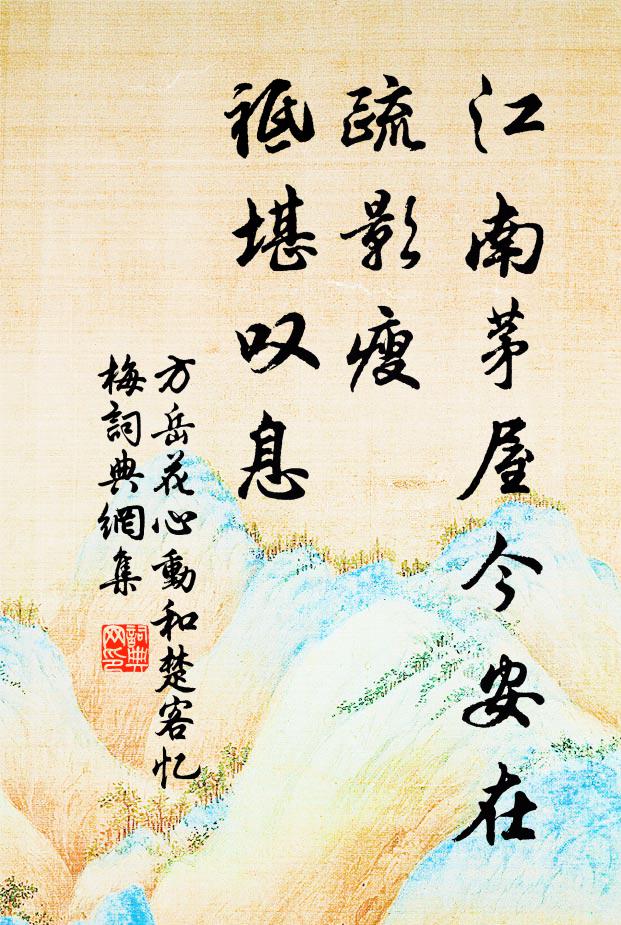 江南茅屋今安在
疏影瘦
祗堪叹息
方岳花心動和楚客忆
梅詞典網集
詞典网印